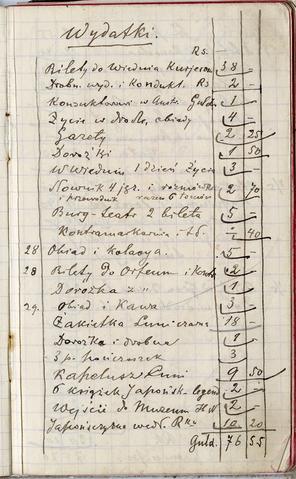 Wydatki.
Rs. –
Bilety do Wiednia Kurjerem 38 –
Drobn. wyd. i Kondukt. Rs 2 –
Konduktorowi w Austr. Guld. 1 –
Życie w drodze, obiady 4 –
Gazety 2 25
Dorożki 1 50
W Wiedniu 1 dzień Życie 3 –
Słownik 4 jęz. i rozmówki 2 70
i Przewodnik razem 6 tomów
Burg-teatr 2 bileta 5 –
Kontramarkarnia i td. – 40
28 Obiad i Kolacya. 5 –
28 Bilety do Orfeum i 2 –
Dorożka z " 1 –
29. Obiad i Kawa 3 –
Żakietka 18 –
Dorożka i drobne 1 –
3 p. pończoszek 3
Kapelusz Luni 9 50
6 książek Japońsk. legend 2 –
Wejście do Muzeum 2 –
10 20
Guld. 76 55